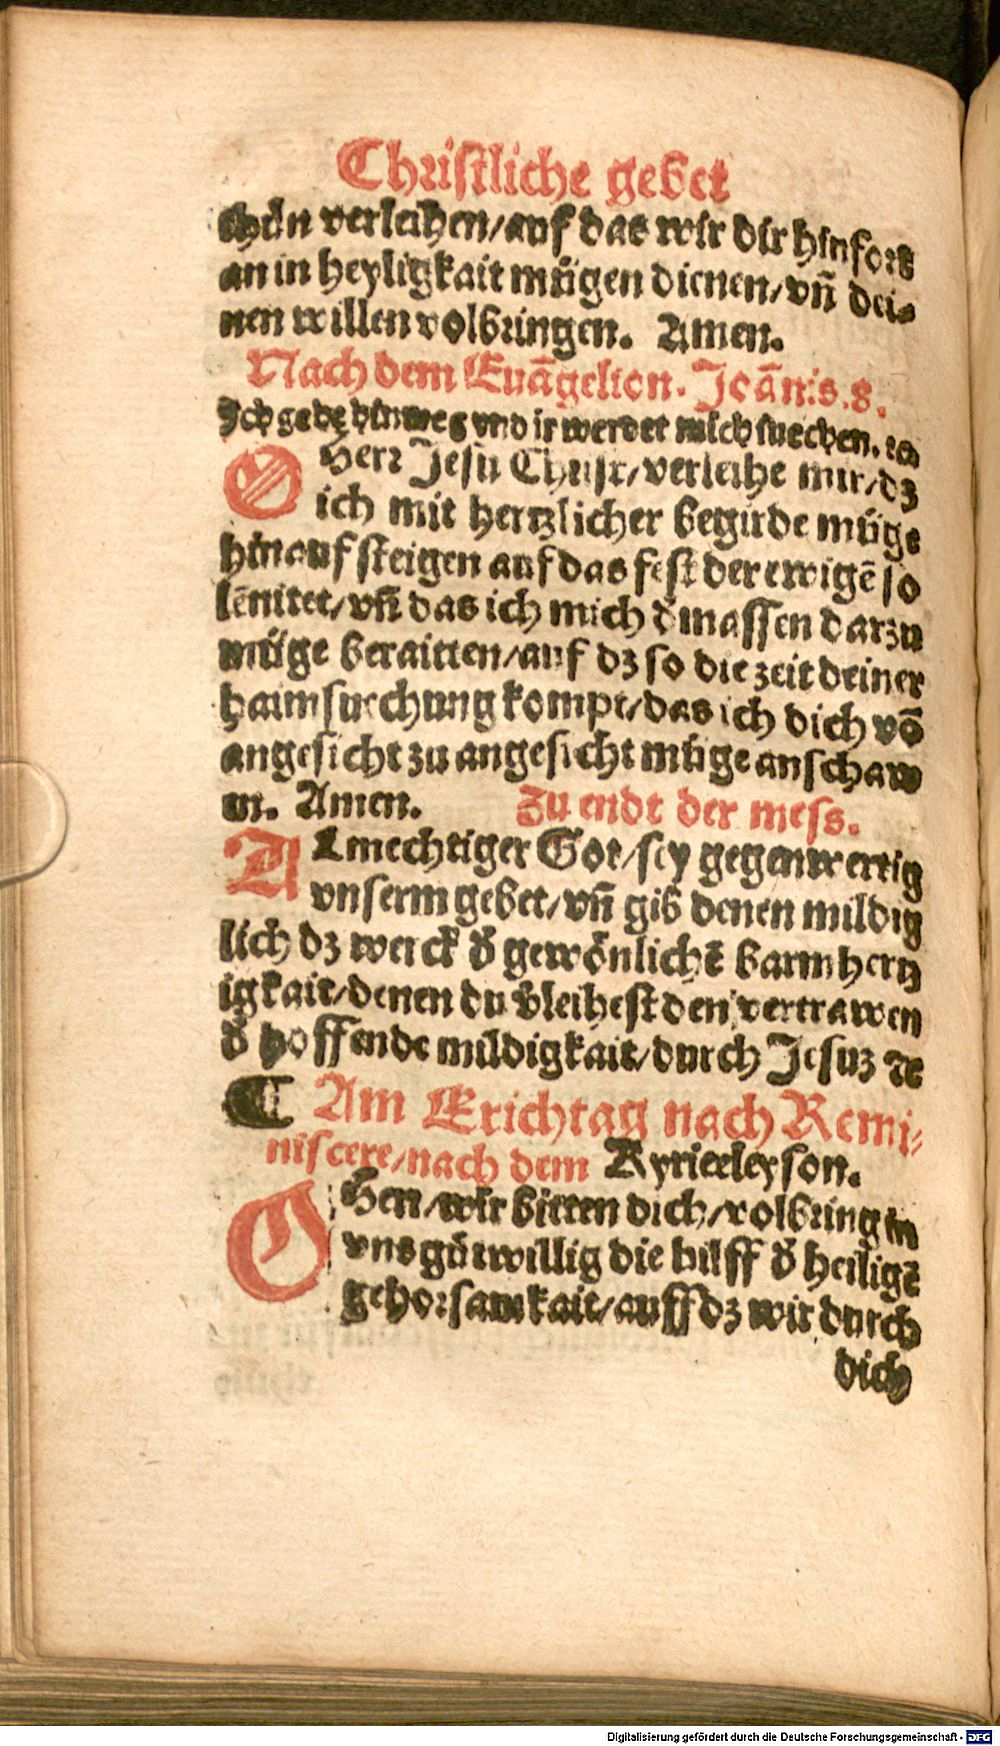 Christliche gebet
thůn verleihen/auf das wir dir hinfort
an in heyligkait mügen dienen/vñ dei-
nen willen volbringen. Amen.
Nach dem Euãgelion. Joãnis.8.
Ich gehe hinweg vnd ir werdet mich suechen. ꝛc
O Herr Jesu Christ/verleihe mir/dz
ich mit hertzlicher begirde müge
hinauf steigen auf das fest der ewigẽ so
lẽnitet/vñ das ich mich d̕massen darzu
müge beraitten/auf dz so die zeit deiner
haimsuechung kompt/das ich dich võ
angesicht zu angesicht müge anschaw
en. Amen. Zu endt der mess.
ALmechtiger Got/sey gegenwertig
vnserm gebet/vñ gib denen mildig
lich dz werck d̕ gewönlichẽ barmhertz
igkait/denen du v̕leihest den vertrawen
d̕ hoffende mildigkait/durch Jesuz ꝛc
¶ Am Erichtag nach Remi-
niscere/nach dem Kyrieeleyson.
OHerr/wir bitten dich/volbring in
vns gůtwillig die hilff d̕ heiligẽ
gehorsamkait/auff dz wir durch
dich
Digitalisierung gefördert durch die Deutsche Forschungsgemeinschaft - DFG